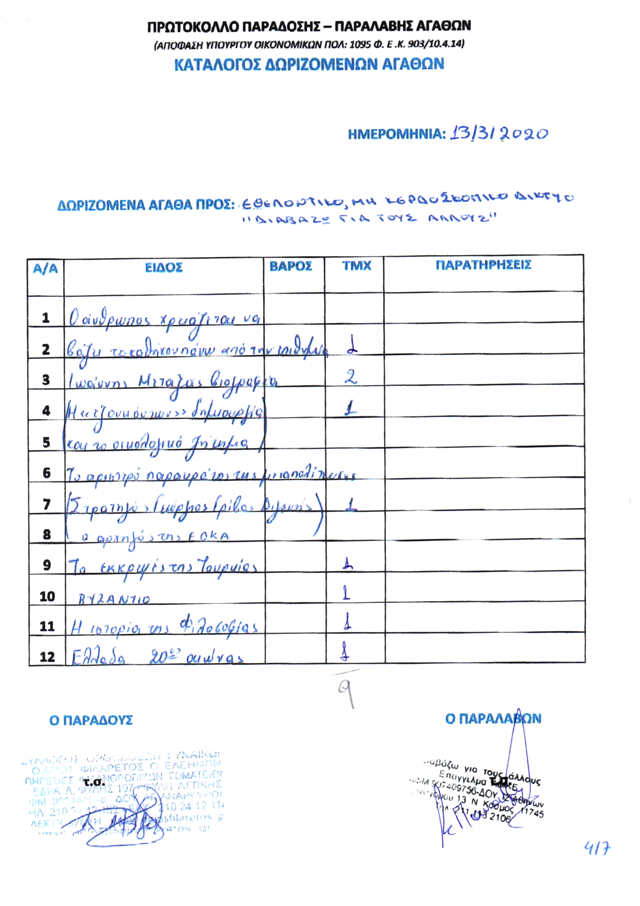 ΠΡΩΤΟΚΟΛΛΟ ΠΑΡΑΔΟΣΗΣ – ΠΑΡΑΛΑΒΗΣ ΑΓΑΘΩΝ
(ΑΠΟΦΑΣΗ ΥΠΟΥΡΓΟΥ ΟΙΚΟΝΟΜΙΚΩΝ ΠΟΛ: 1095 Φ. Ε .Κ. 903/10.4.14)
ΚΑΤΑΛΟΓΟΣ ΔΩΡΙΖΟΜΕΝΩΝ ΑΓΑΘΩΝ
ΗΜΕΡΟΜΗΝΙΑ: 13/3/2020
ΔΩΡΙΖΟΜΕΝΑ ΑΓΑΘΑ ΠΡΟΣ: ΕΘΕΛΟΝΤΙΚΟ, ΜΗ ΚΕΡΔΟΣΚΟΠΙΚΟ ΔΙΚΤΥΟ
"ΔΙΑΒΑΖΩ ΓΙΑ ΤΟΥΣ ΑΛΛΟΥΣ"
Α/Α ΕΙΔΟΣ ΒΑΡΟΣ ΤΜΧ ΠΑΡΑΤΗΡΗΣΕΙΣ
1 Ο άνθρωπος χρειάζεται να
2 βάζει το καθήκον πάνω από την επιθυμία 1
3 Ιωάννης Μεταξάς βιογραφία 2
4 Η δημιουργία 1
5 και το οικολογικό ζήτημα
6 Το αριστερό παρακράτος της μεταπολίτευσης
7 (Στρατηγός Γεώργιος Γρίβας Διγενής 1
8 ο αρχηγός της ΕΟΚΑ)
9 Το της Τουρκίας 1
10 ΒΥΖΑΝΤΙΟ 1
11 Η ιστορία της Φιλοσοφίας 1
12 Ελλάδα 20ος αιώνας 1
9
Ο ΠΑΡΑΔΟΥΣ Ο ΠΑΡΑΛΑΒΩΝ
Ο ΑΓΙΟΣ ΦΙΛΑΡΕΤΟΣ Ο ΕΛΕΗΜΩΝ
τ.σ.
Διαβάζω για τους άλλους
Επαγγελμα
τ.σ.
13 Ν Κοσμος 11745
4/7